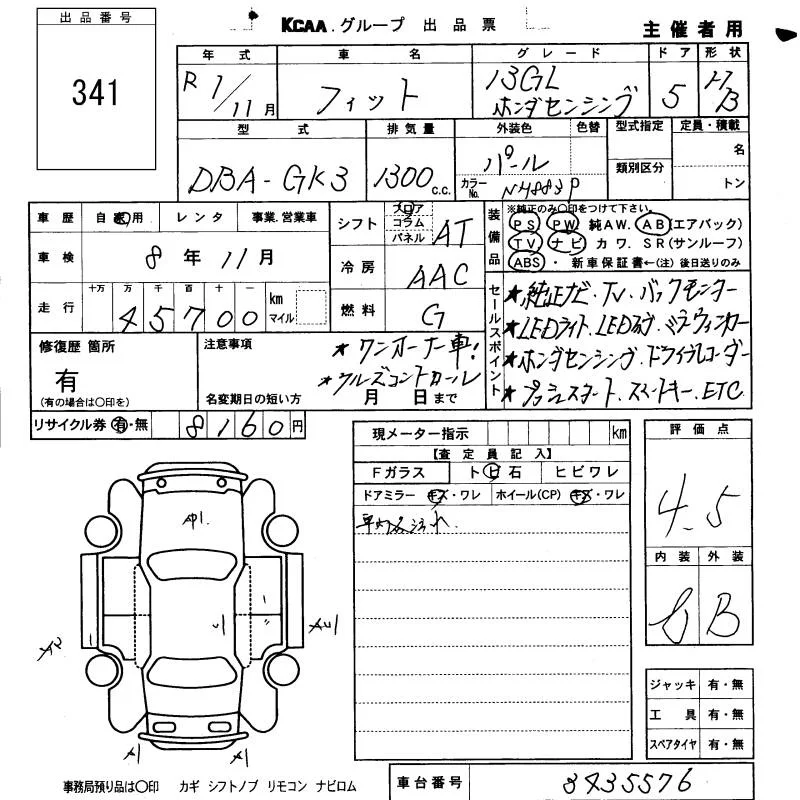 出品番号
341
KCAA.グループ 出品票
主催者用
年式 車名 グレード ドア 形状
R 1/11月 フィット 13GL ホンダセンシング 5 H/B
型式 排気量 外装色 色替 型式指定 定員・積載
DBA-GK3 1300 c.c. パール カラーNo. NH883P 類別区分 名 トン
車歴 自家用 レンタ 事業.営業車
車検 8年 11月
走行 十万 万 千 百 十 一 km マイル
45700
シフト フロア コラム パネル AT
冷房 AAC
燃料 G
装備品 ※純正のみ〇印をつけて下さい。
PS PW 純AW. AB(エアバック)
TV ナビ カワ. SR(サンルーフ)
ABS・ 新車保証書←(注) 後日送りのみ
セールスポイント
★純正ナビ.TV.バックモニター
★LEDライト.LEDフォグ.ミラーウィンカー
★ホンダセンシング.ドライブレコーダー
★プッシュスタート.スマートキー.ETC
修復歴 箇所
有
(有の場合は〇印を)
注意事項
★ワンオーナー車!
★クルーズコントロール
名変期日の短い方 月 日まで
リサイクル券 有・無 8160円
現メーター指示 km
【査定員記入】
Fガラス トビ石 ヒビワレ
ドアミラー キズ・ワレ ホイール(CP) キズ・ワレ
評価点
4.5
内装 外装
B
AP1.
A2
A1 A1
ジャッキ 有・無
工具 有・無
スペアタイヤ 有・無
事務局預り品は〇印 カギ シフトノブ リモコン ナビロム
車台番号 3435576